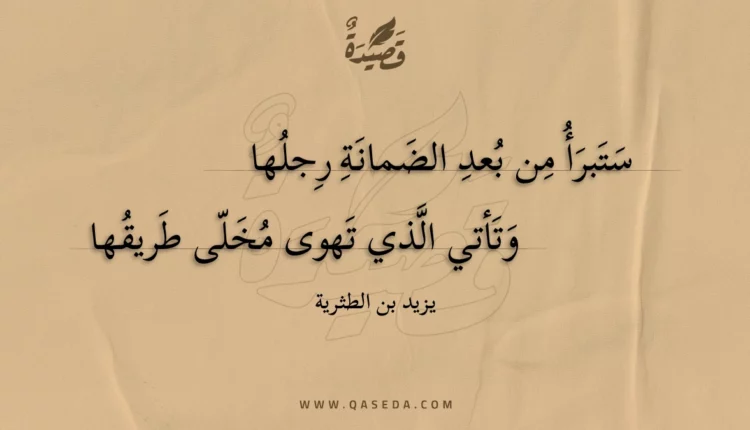 قَصِيدَةٌ
سَتَبرَأُ مِن بُعدِ الضَمانَةِ رِجلُها
وَتَأتي الَّذي تَهوى مُخَلّى طَريقُها
يزيد بن الطثرية
WWW.QASEDA.COM